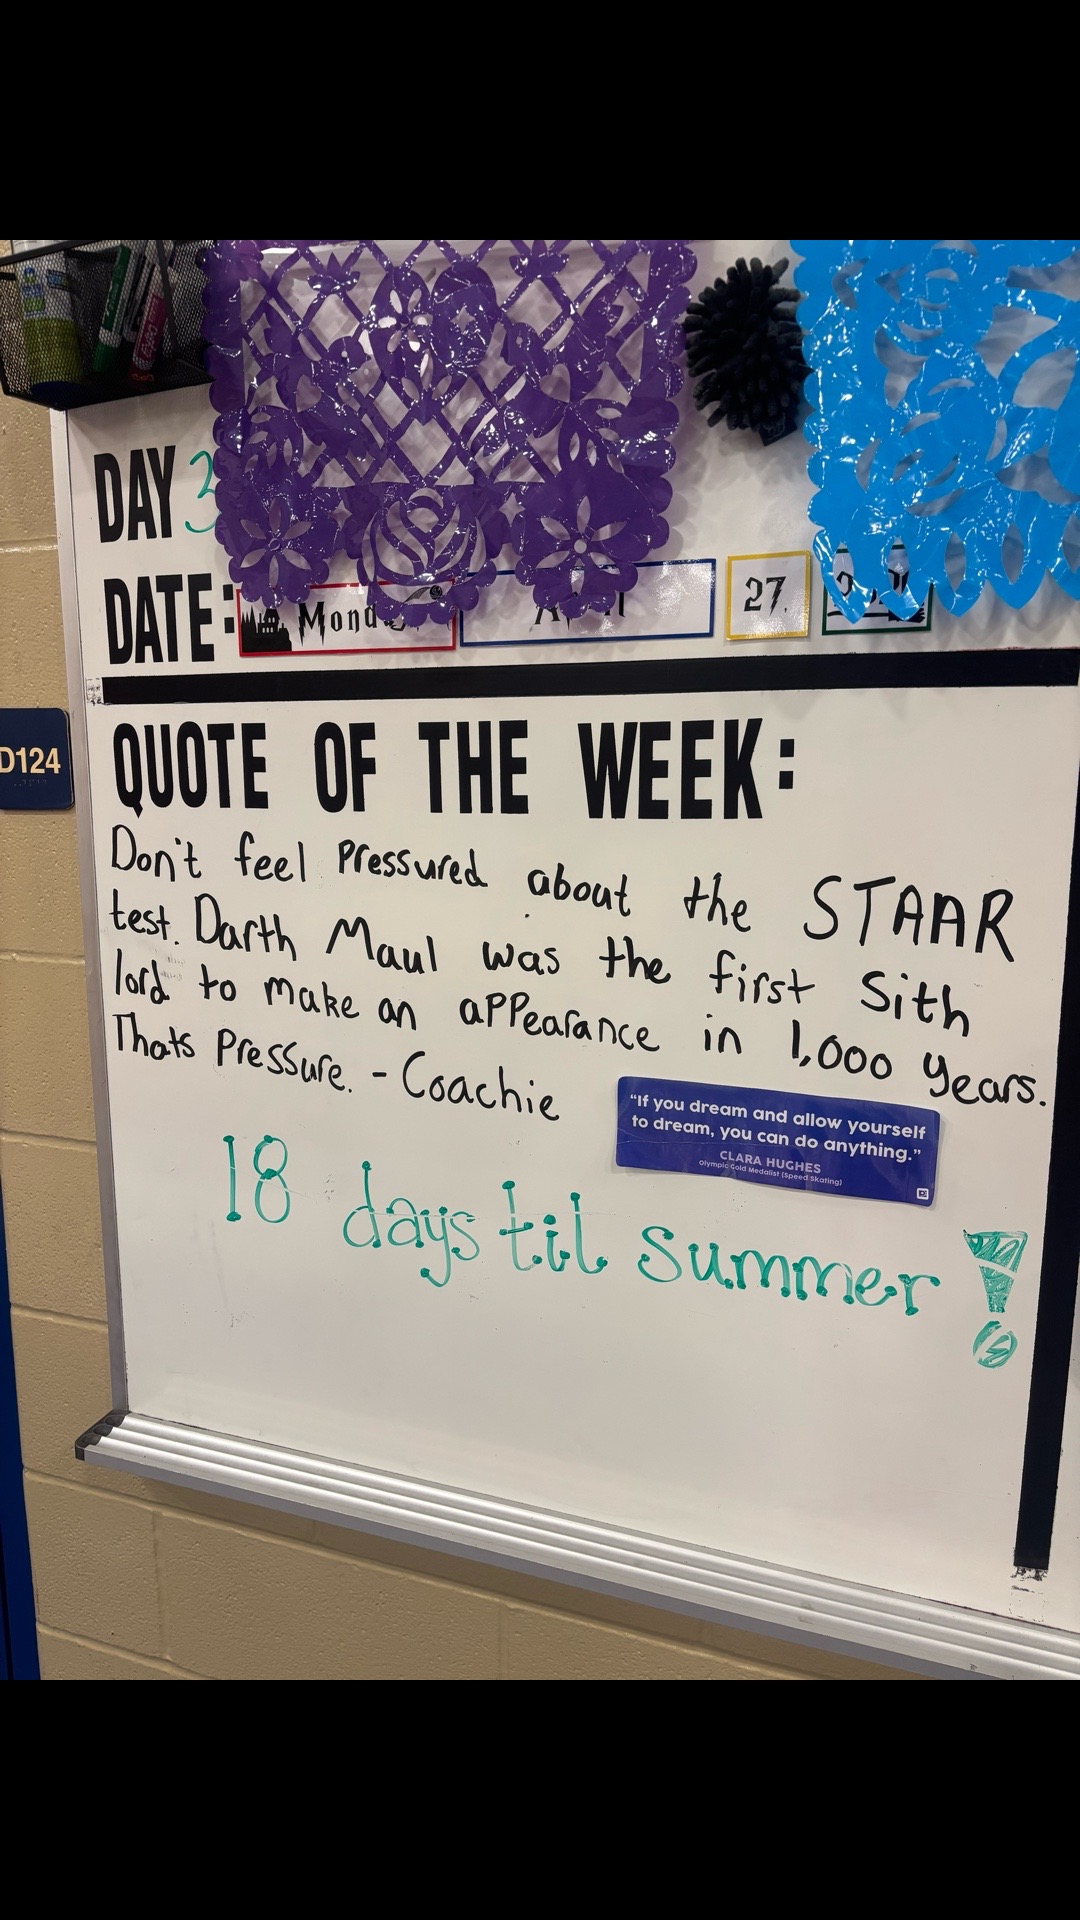 DAY 3
DATE:
27
QUOTE OF THE WEEK:
Don't feel pressured about the STAAR
test. Darth Maul was the first Sith
lord to make an appearance in 1,000 years.
Thats pressure. - Coachie
"If you dream and allow yourself
to dream, you can do anything."
CLARA HUGHES
Olympic Gold Medalist (Speed Skating)
18 days til summer!
D124
EXPO